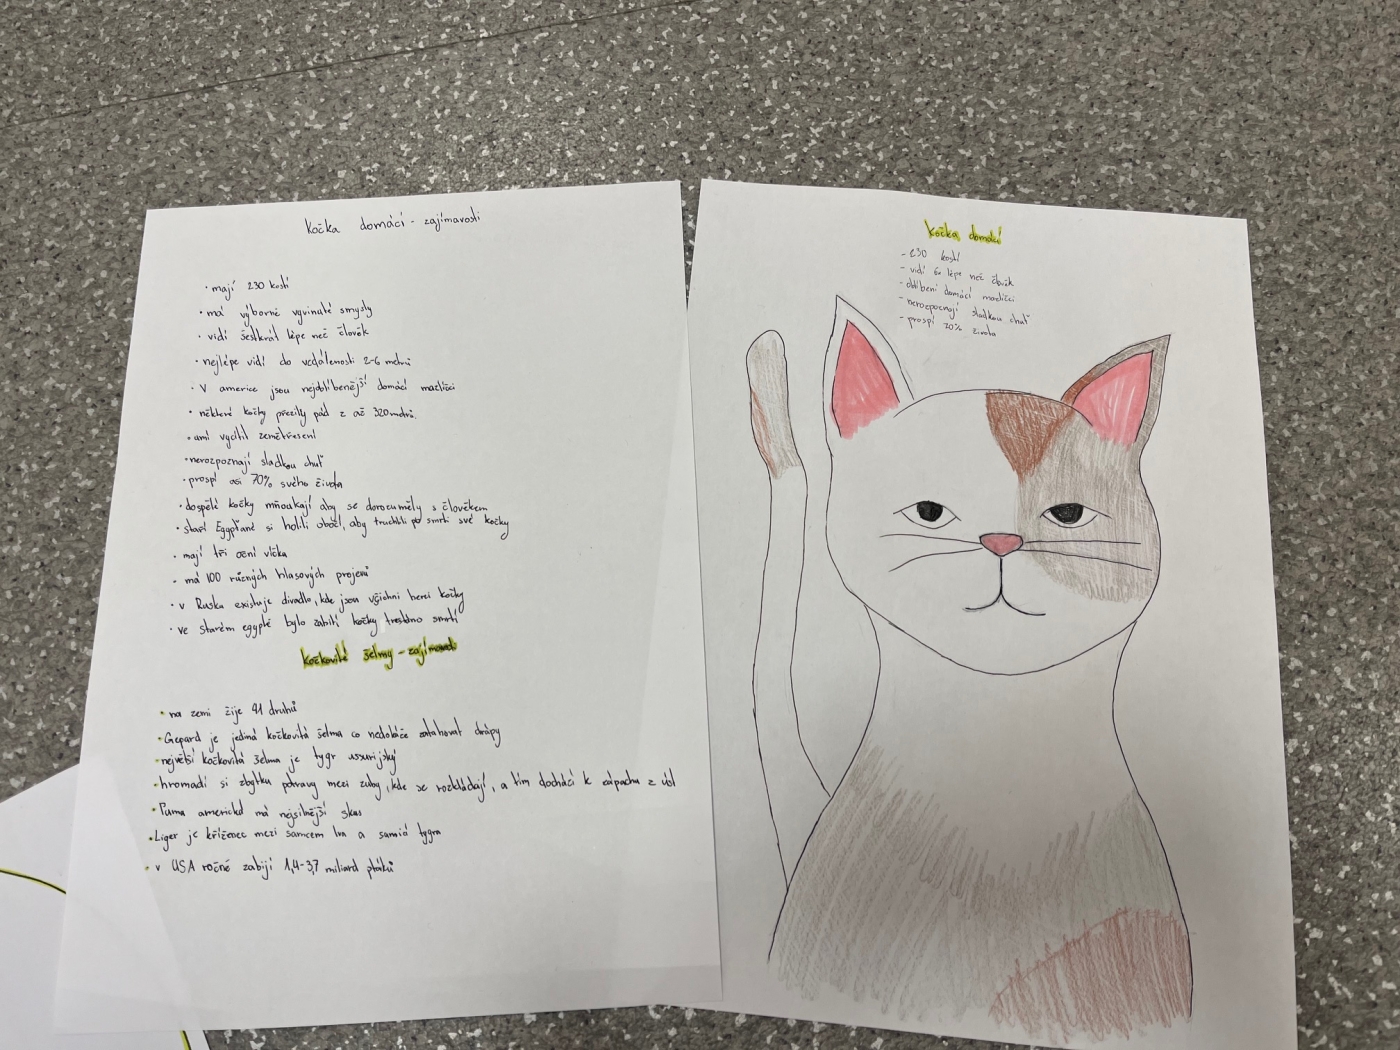 Kočka domácí - zajímavosti
• mají 230 kostí
• má výborně vyvinuté smysly
• vidí šestkrát lépe než člověk
• nejlépe vidí do vzdálenosti 2-6 metrů
• V americe jsou nejoblíbenější domácí mazlíčci
• některé kočky přežily pád z až 320 metrů.
• umí vycítit zemětřesení
• nerozpoznají sladkou chuť
• prospí asi 70% svého života
• dospělé kočky mňoukají aby se dorozuměly s člověkem
• staří Egypťané si holili obočí, aby truchlili po smrti své kočky
• mají tři oční víčka
• má 100 různých hlasových projevů
• v Rusku existuje divadlo, kde jsou všichni herci kočky
• ve starém egyptě bylo zabití kočky trestáno smrtí
Kočkovité šelmy - zajímavosti
• na zemi žije 41 druhů
• Gepard je jediná kočkovitá šelma co nedokáže zatahovat drápy
• největší kočkovitá šelma je tygr ussurijský
• hromadí si zbytky potravy mezi zuby, kde se rozkládají, a tím dochází k zápachu z úst
• Puma americká má nejsilnější skus
• Liger je kříženec mezi samcem lva a samicí tygra
• v USA ročně zabijí 1,4-3,7 miliard ptáků
Kočka domácí
- 230 kostí
- vidí 6x lépe než člověk
- oblíbení domácí mazlíčci
- nerozpoznají sladkou chuť
- prospí 70% života